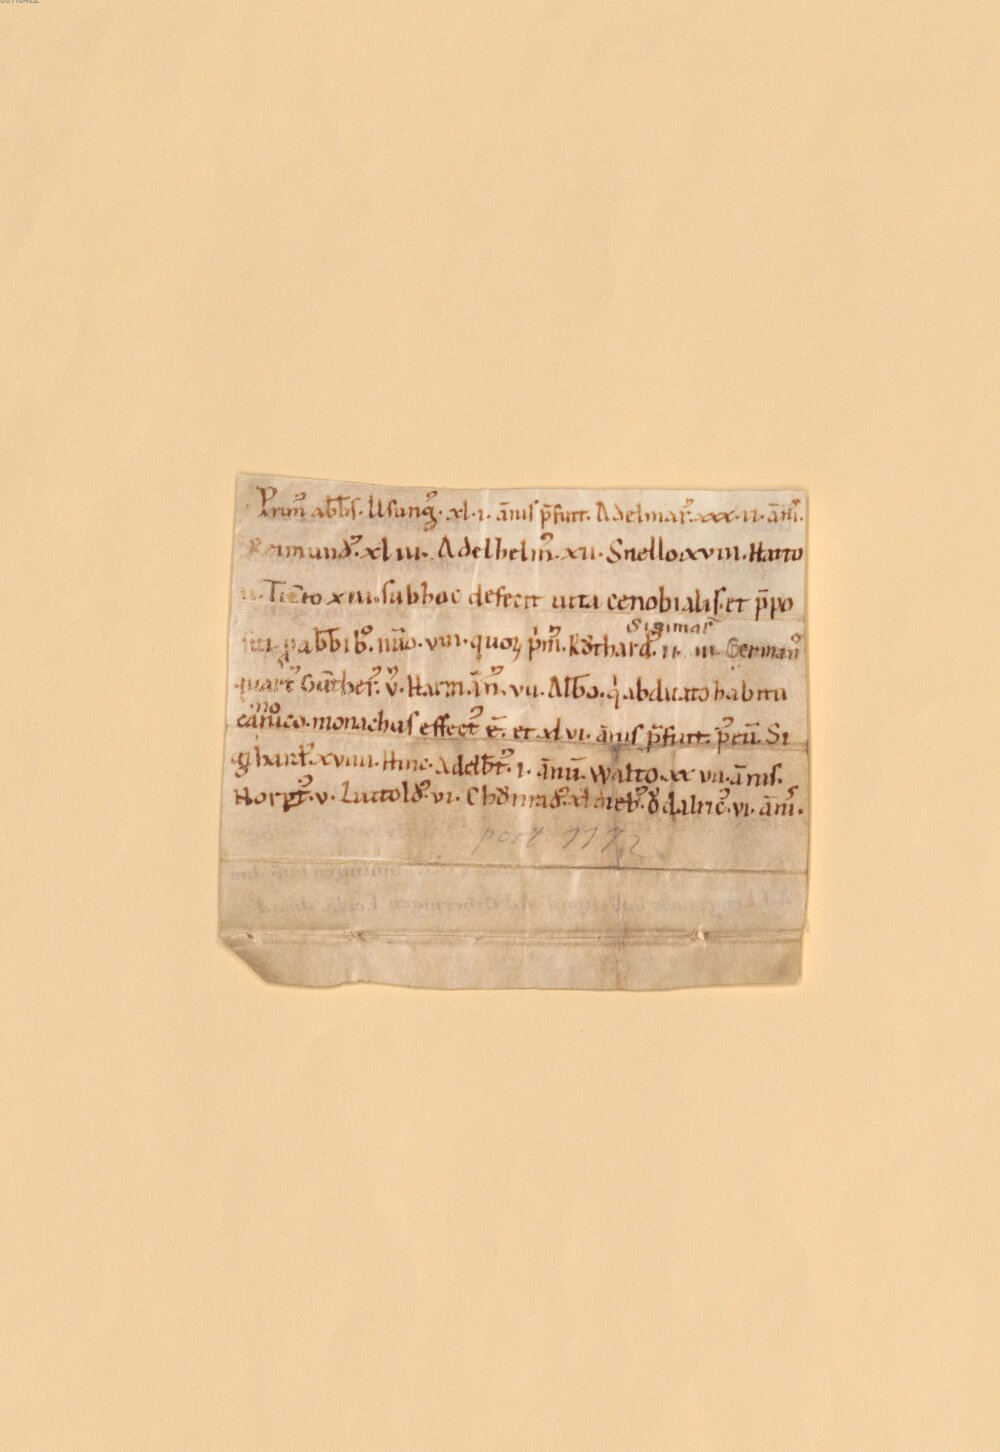 Prim᷒ abb̄s. Usung᷒. xl. i. ānis p̄fuit. Adelmar᷒. xxx. ii. ān̄.
Reimund᷒. xl iii. Adelhelm᷒. xii. Snello. xviii. Hatto
Ticto xiii. sub hoc defecit uita cenobialis. et p̄po
siti. p abb̄ib᷒. nūo. viii. quoꝝ p̍m᷒. Rǒthard᷒. ii.
Sigimar᷒
iii. German᷒
quart᷒ Gūther᷒. v̍. Harm̄an᷒. vii. Albo. q̍ abdicato habitu
canico. monachus effect᷒ ē. et xl vi. ānis p̄fuit. p᷒t eū. Si
ghart᷒. xviiii. Hinc. Adelbt᷒. i. ānū. Walto. xx vii. ānis.
v. Luitold᷒. vi. Chǒnrad᷒. xl dieb᷒. Ǒdalric᷒. vi. ān̄.
post 1172